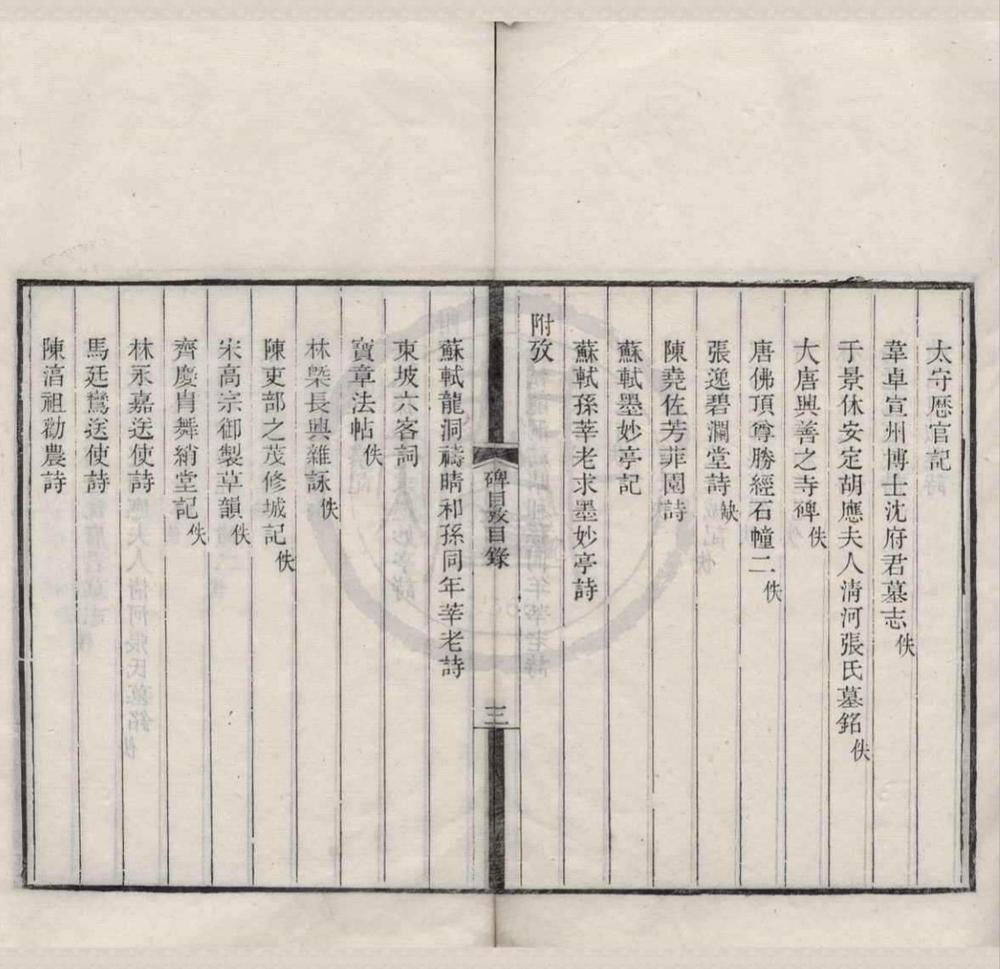 太守厯官記
韋卓宣州博士沈府君墓志佚
于景休安定胡應夫人清河張氏墓銘佚
大唐興善之寺碑佚
唐佛頂尊勝經石幢二佚
張逸碧瀾堂詩缺
陳堯佐芳菲園詩
蘇軾墨妙亭記
蘇軾孫莘老求墨妙亭詩
附攷
碑目攷目錄
三
蘇軾龍洞禱晴和孫同年莘老詩
東坡六客詞
寶章法帖佚
林㮣長興雜詠佚
陳吏部之茂修城記佚
宋高宗御製草韻佚
齊慶胄舞綃堂記佚
林永嘉送使詩
馬廷鸞送使詩
陳㵪祖勸農詩